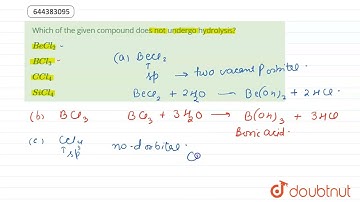 644383095
Which of the given compound does not undergo hydrolysis?
BeCl₂ -
BCl₃ -
CCl₄
SiCl₄
(a) BeCl₂
↑
sp → two vacant p orbital.
BeCl₂ + 2H₂O → Be(OH)₂ + 2HCl.
(b) BCl₃ BCl₃ + 3H₂O → B(OH)₃ + 3HCl
Boric acid.
(c) CCl₄ no-d orbital.
↑ sp³
CC
doubtnut